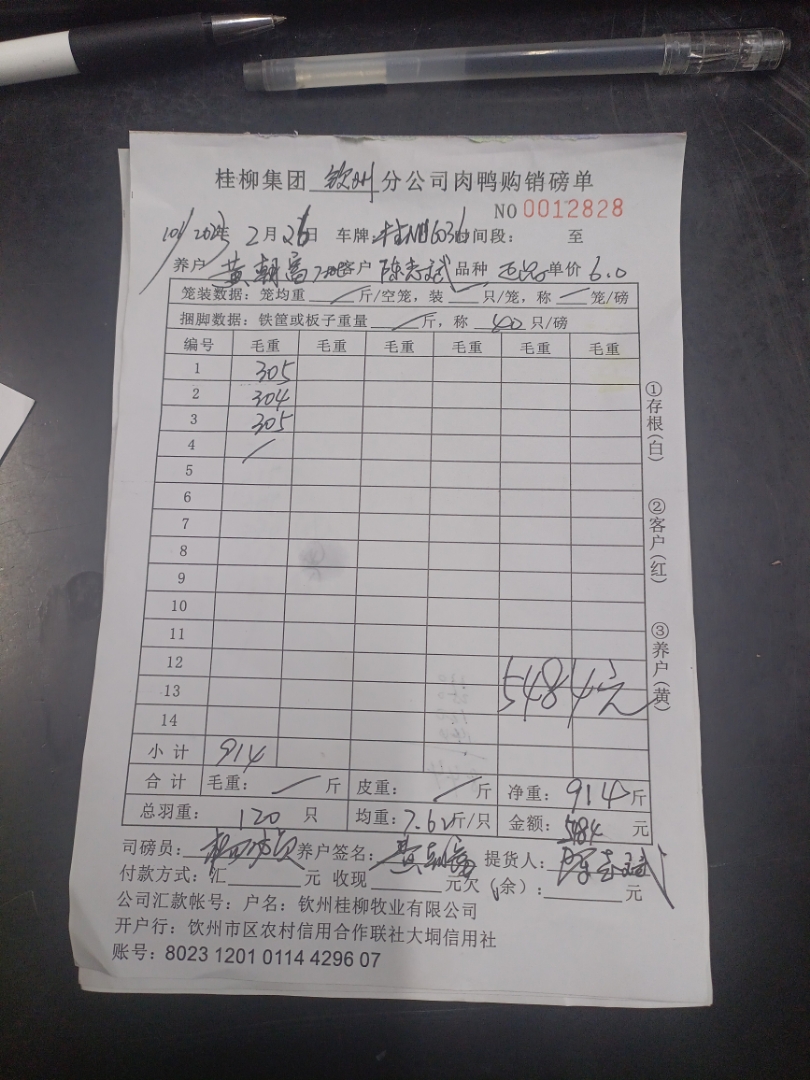 桂柳集团 钦州 分公司肉鸭购销磅单
NO 0012828
2月26日 车牌: 时间段: 至
养户 黄朝富 客户 陈志斌 品种 单价 6.0
笼装数据: 笼均重 / 斤/空笼, 装 只/笼, 称 / 笼/磅
捆脚数据: 铁筐或板子重量 / 斤, 称 40 只/磅
编号 毛重 毛重 毛重 毛重 毛重 毛重
1 305
2 304
3 305
4 /
5
6
7
8
9
10
11
12
13
14
5484元
小计 914
合计 毛重: / 斤 皮重: / 斤 净重: 914 斤
总羽重: 120 只 均重: 7.62 斤/只 金额: 5484 元
司磅员: 养户签名: 黄朝富 提货人: 陈志斌
付款方式: 汇 元 收现 元欠(余): 元
公司汇款帐号: 户名: 钦州桂柳牧业有限公司
开户行: 钦州市区农村信用合作联社大垌信用社
账号: 8023 1201 0114 4296 07
①存根(白)
②客户(红)
③养户(黄)